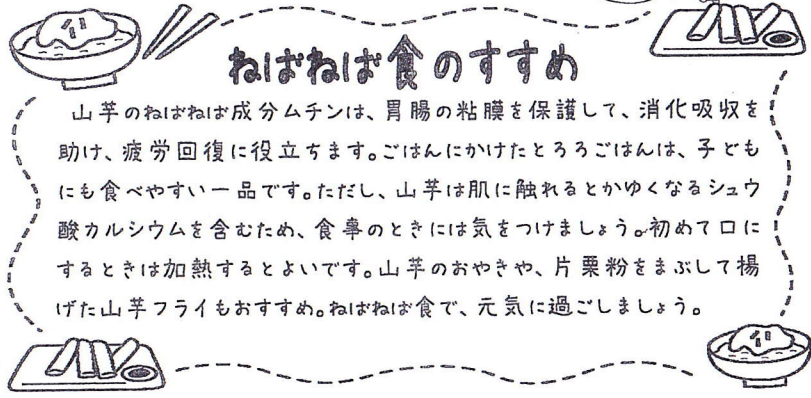 ねばねば食のすすめ
山芋のねばねば成分ムチンは、胃腸の粘膜を保護して、消化吸収を
助け、疲労回復に役立ちます。ごはんにかけたとろろごはんは、子ども
にも食べやすい一品です。ただし、山芋は肌に触れるとかゆくなるシュウ
酸カルシウムを含むため、食事のときには気をつけましょう。初めて口に
するときは加熱するとよいです。山芋のおやきや、片栗粉をまぶして揚
げた山芋フライもおすすめ。ねばねば食で、元気に過ごしましょう。